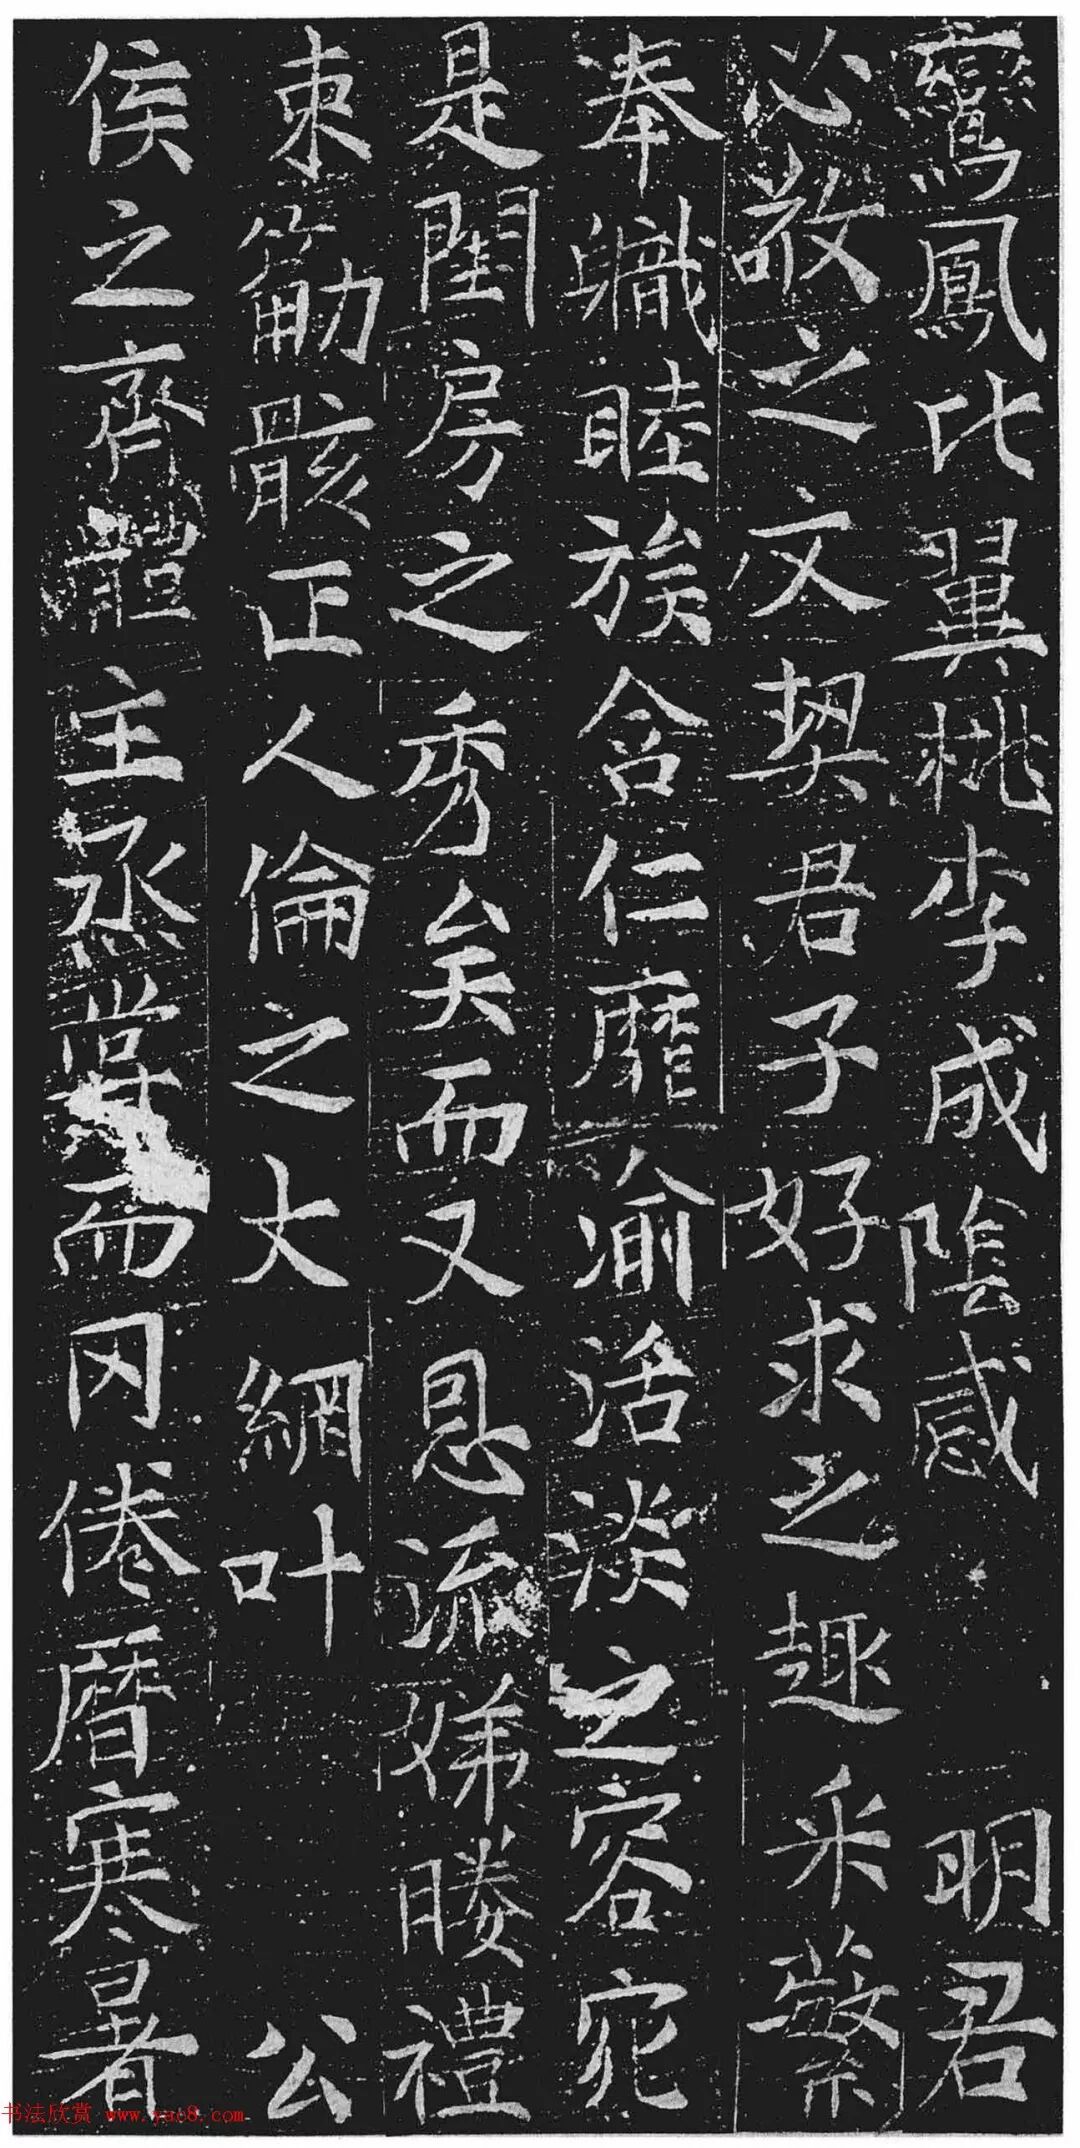 鸞鳳比翼桃李成陰感 明君
必敬之文契君子好求之趣采蘩
奉職睦族含仁靡渝活淡之容宛
是閨房之秀矣而又恩流娣媵禮
束筋骸正人倫之大綱叶 公
侯之齊體主烝甞而罔倦曆寒暑
书法欣赏 www.yac8.com